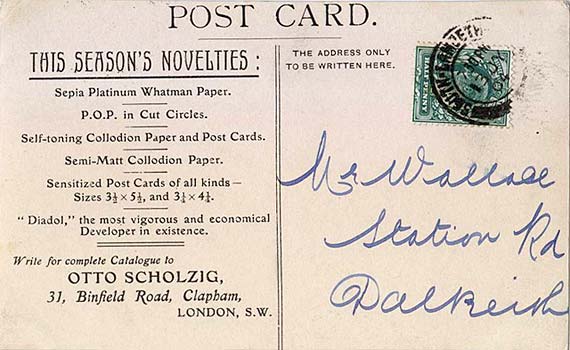 POST CARD.
THIS SEASON'S NOVELTIES :
Sepia Platinum Whatman Paper.
P.O.P. in Cut Circles.
Self-toning Collodion Paper and Post Cards.
Semi-Matt Collodion Paper.
Sensitized Post Cards of all kinds—
Sizes 3½ × 5½, and 3¼ × 4¼.
"Diadol," the most vigorous and economical
Developer in existence.
Write for complete Catalogue to
OTTO SCHOLZIG,
31, Binfield Road, Clapham,
LONDON, S.W.
THE ADDRESS ONLY
TO BE WRITTEN HERE.
HALF PENNY
Mr Wallace
Station Rd
Dalkeith